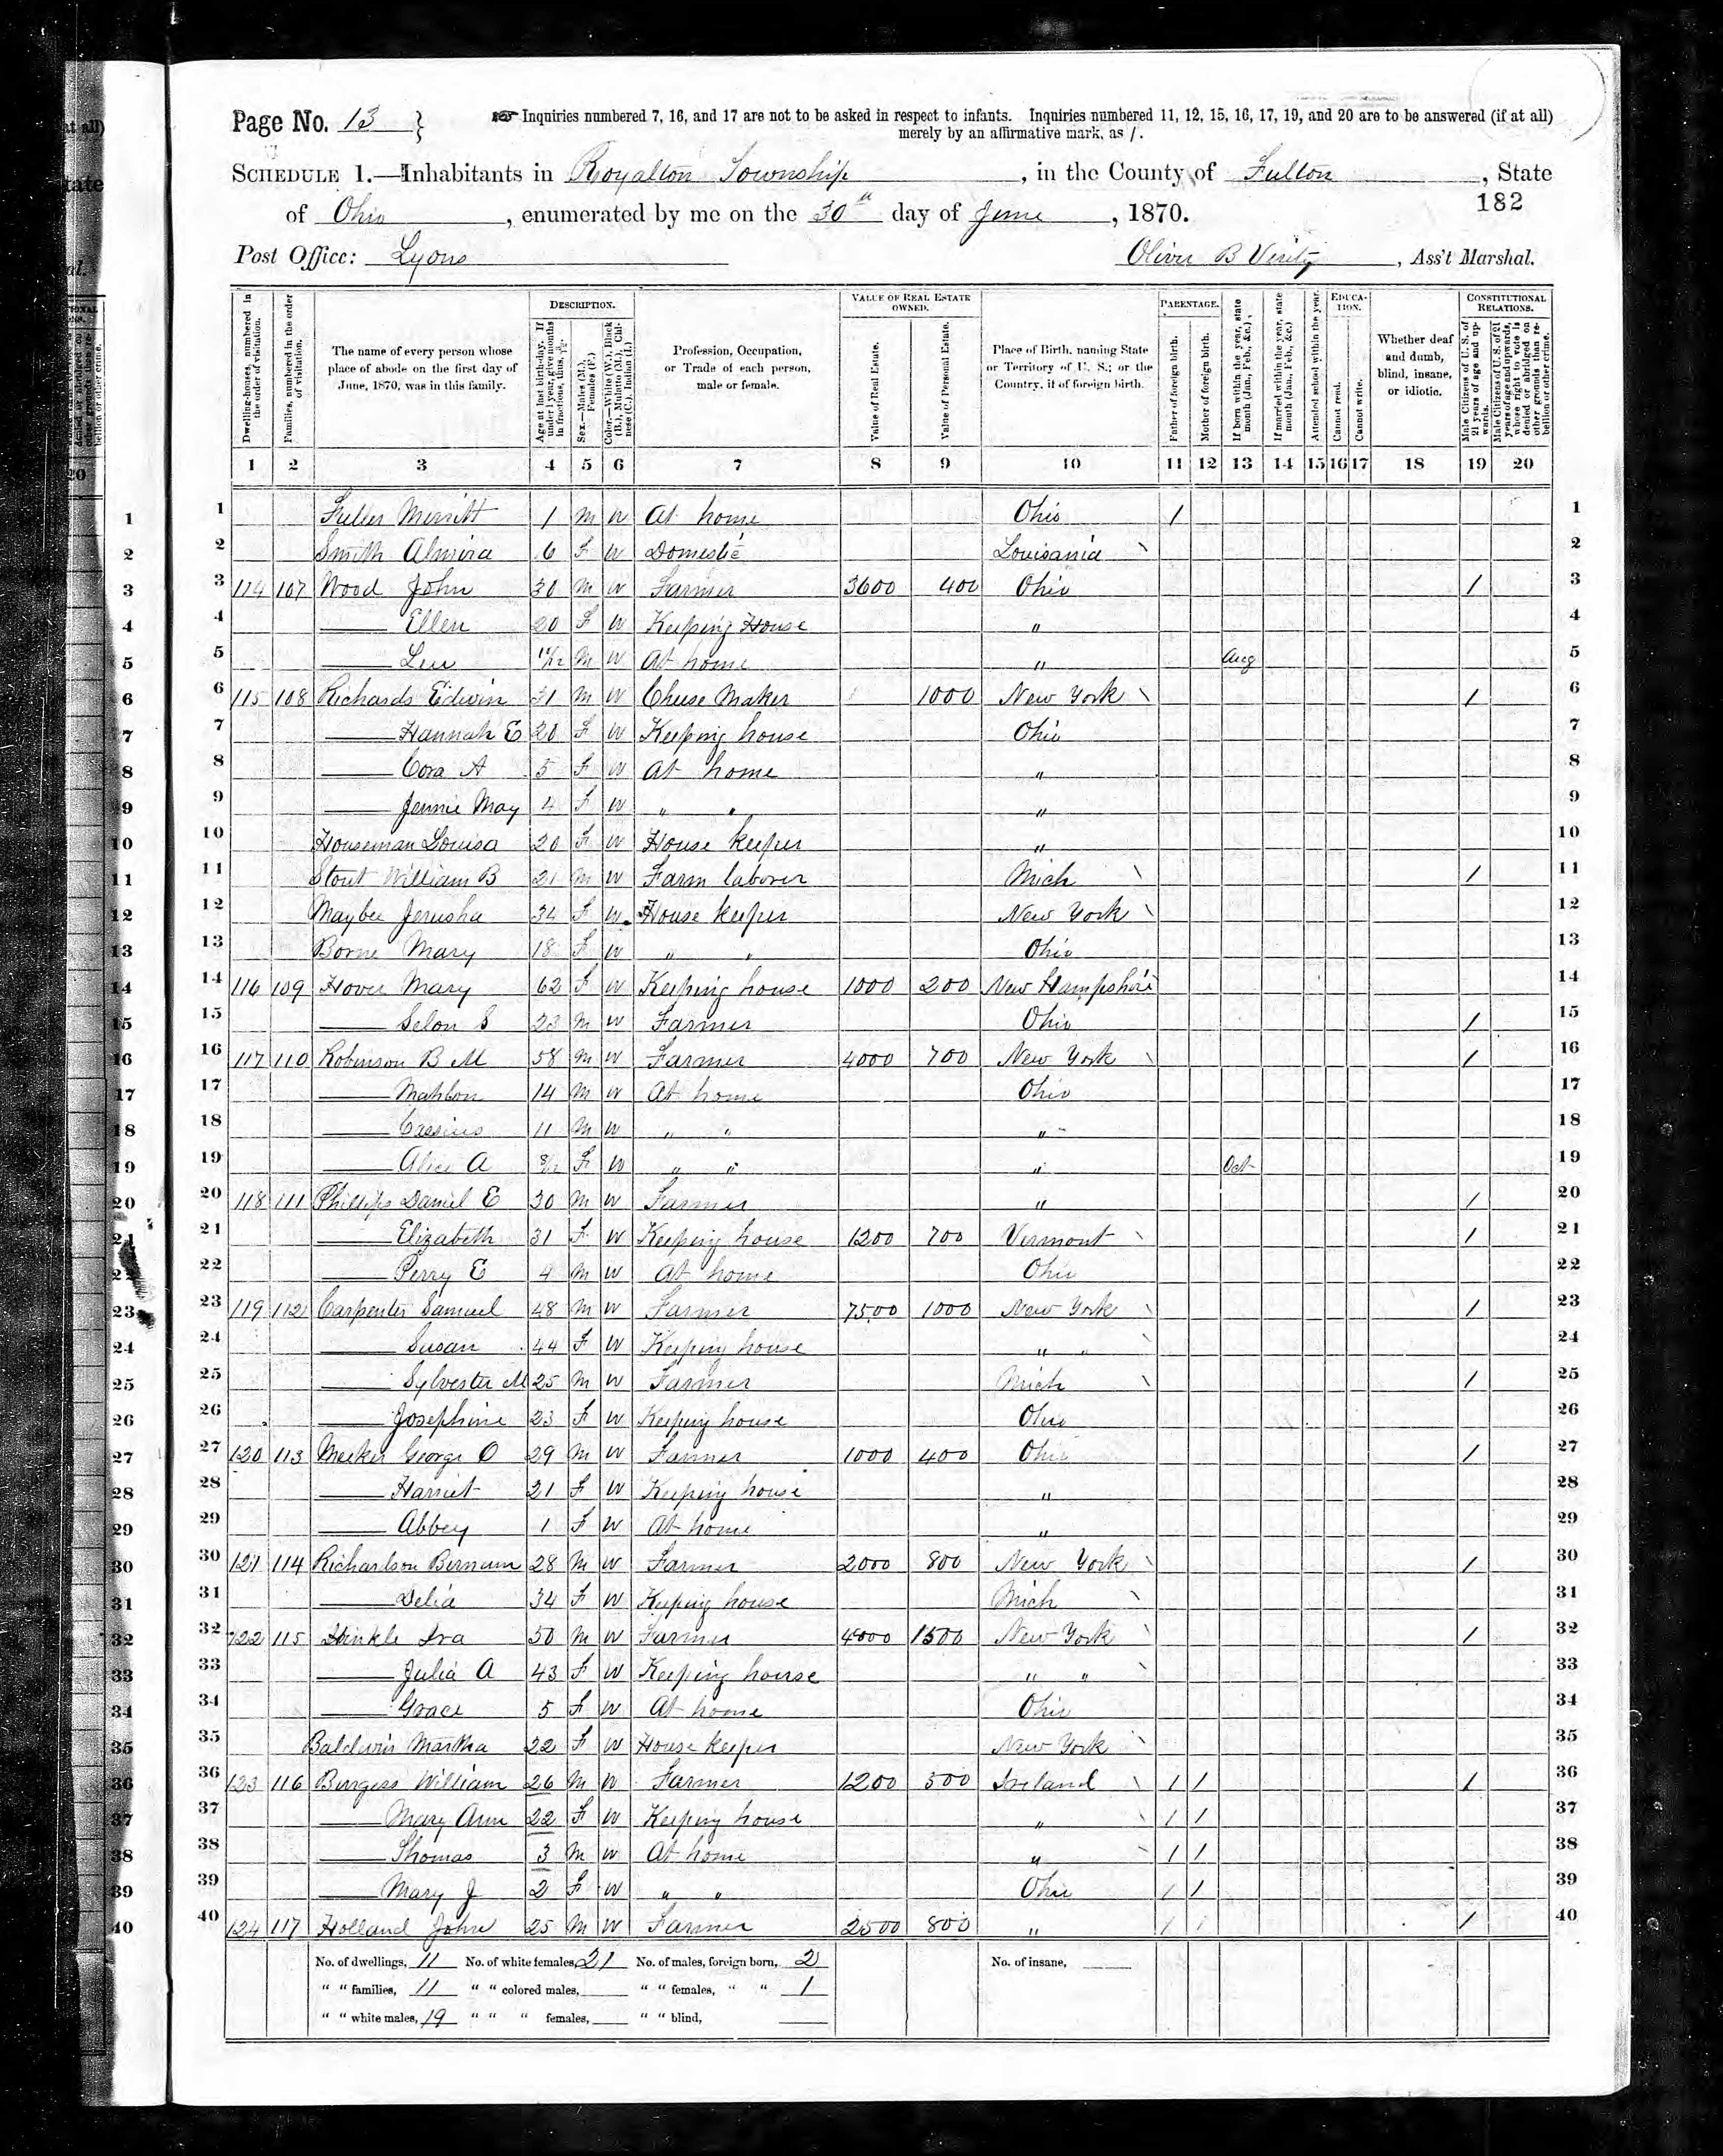 Page No. 13 }
Inquiries numbered 7, 16, and 17 are not to be asked in respect to infants. Inquiries numbered 11, 12, 15, 16, 17, 19, and 20 are to be answered (if at all)
merely by an affirmative mark, as /.
SCHEDULE 1.—Inhabitants in Royalton Township, in the County of Fulton, State
of Ohio, enumerated by me on the 30th day of June, 1870.
182
Post Office: Lyons
Oliver B Verity, Ass't Marshal.
Dwelling-houses, numbered in the order of visitation.
Families, numbered in the order of visitation.
The name of every person whose place of abode on the first day of June, 1870, was in this family.
DESCRIPTION.
Age at last birth-day. If under 1 year, give months in fractions, thus, 3/12
Sex.—Males (M.), Females (F.)
Color.—White (W.), Black (B.), Mulatto (M.), Chinese (C.), Indian (I.)
Profession, Occupation, or Trade of each person, male or female.
VALUE OF REAL ESTATE OWNED.
Value of Real Estate.
Value of Personal Estate.
Place of Birth, naming State or Territory of U. S.; or the Country, if of foreign birth.
PARENTAGE.
Father of foreign birth.
Mother of foreign birth.
If born within the year, state month (Jan., Feb., &c.)
If married within the year, state month (Jan., Feb., &c.)
Attended school within the year.
EDUCATION.
Cannot read.
Cannot write.
Whether deaf and dumb, blind, insane, or idiotic.
CONSTITUTIONAL RELATIONS.
Male Citizens of U. S. of 21 years of age and upwards.
Male Citizens of U. S. of 21 years of age and upwards, whose right to vote is denied or abridged on other grounds than rebellion or other crime.
1 2 3 4 5 6 7 8 9 10 11 12 13 14 15 16 17 18 19 20
1 Fuller Merritt 1 M W At home Ohio / 1
2 Smith Almira 6 F W Domestic Louisania 2
3 114 107 Wood John 30 M W Farmer 3600 400 Ohio / 3
4 —— Ellen 20 F W Keeping House " 4
5 —— Lew 11/12 M W At home " Aug 5
6 115 108 Richards Edwin 31 M W Cheese Maker 1000 New York / 6
7 —— Hannah E 20 F W Keeping house Ohio 7
8 —— Cora A 5 F W At home " 8
9 —— Jennie May 4 F W " " " 9
10 Houseman Louisa 20 F W House keeper " 10
11 Stout William B 21 M W Farm laborer Mich / 11
12 Maybee Jerusha 34 F W House keeper New York 12
13 Borne Mary 18 F W " " Ohio 13
14 116 109 Hover Mary 62 F W Keeping house 1000 200 New Hampshire 14
15 —— Selon S 23 M W Farmer Ohio / 15
16 117 110 Robinson B M 58 M W Farmer 4000 700 New York / 16
17 —— Mahlon 14 M W At home Ohio 17
18 —— Cassius 11 M W " " " 18
19 —— Alice A 8/12 F W " " " Oct 19
20 118 111 Phillips Daniel E 30 M W Farmer " / 20
21 —— Elizabeth 31 F W Keeping house 1200 700 Vermont / 21
22 —— Perry E 4 M W At home Ohio 22
23 119 112 Carpenter Samuel 48 M W Farmer 7500 1000 New York / 23
24 —— Susan 44 F W Keeping house " " 24
25 —— Sylvester M 25 M W Farmer Mich / 25
26 —— Josephine 23 F W Keeping house Ohio 26
27 120 113 Meeker George O 29 M W Farmer 1000 400 Ohio / 27
28 —— Harriet 21 F W Keeping house " 28
29 —— Abbey 1 F W At home " 29
30 121 114 Richarlson Bernum 28 M W Farmer 2000 800 New York / 30
31 —— Delia 34 F W Keeping house Mich 31
32 122 115 Hinkle Ira 50 M W Farmer 4000 1500 New York / 32
33 —— Julia A 43 F W Keeping house " " 33
34 —— Grace 5 F W At home Ohio 34
35 Baldwin Martha 22 F W House keeper New York 35
36 123 116 Burgess William 26 M W Farmer 1200 500 Ireland / / / 36
37 —— Mary Ann 22 F W Keeping house " / / 37
38 —— Thomas 3 M W At home " / / 38
39 —— Mary J 2 F W " " Ohio / / 39
40 124 117 Holland John 25 M W Farmer 2500 800 " / / / 40
No. of dwellings, 11 No. of white females, 21 No. of males, foreign born, 2 No. of insane,
" " families, 11 " " colored males, " " females, " " 1
" " white males, 19 " " " females, " " blind,